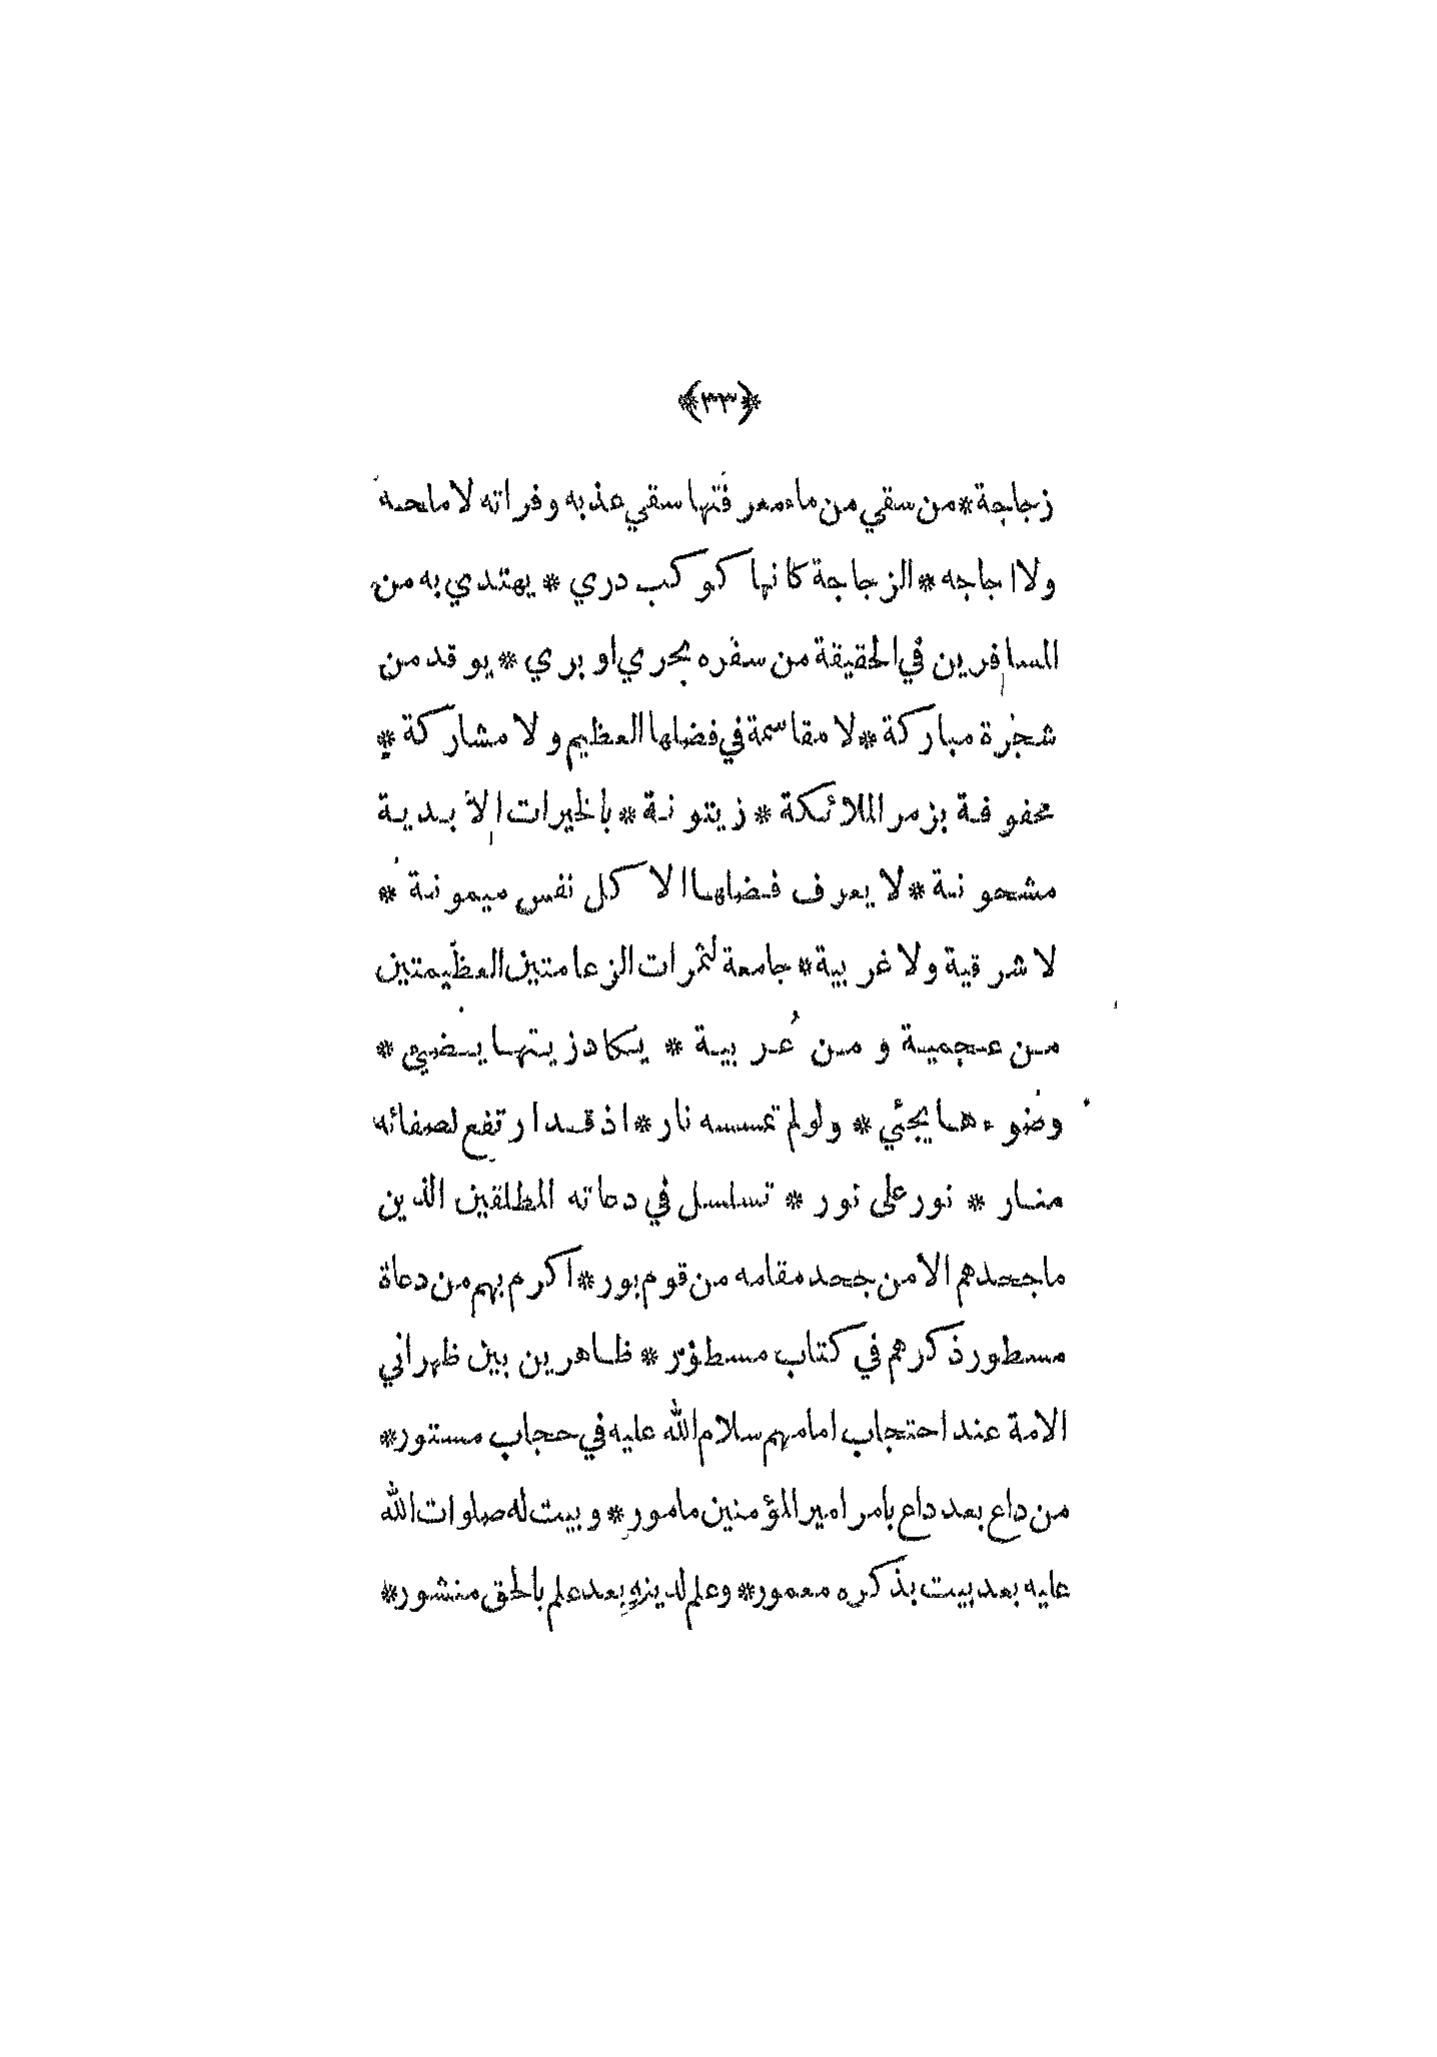 ﴿٣٣﴾
زجاجة * من سقي من ماء معرفتها سقي عذبه وفراته لا ملحه
ولا اجاجه * الزجاجة كانها كوكب دري * يهتدي به من
المسافرين في الحقيقة من سفره بحري او بري * يوقد من
شجرة مباركة * لا مقاسمة في فضلها العظيم ولا مشاركة *
محفوفة بزمر الملائكة * زيتونة * بالخيرات الأبدية
مشحونة * لا يعرف فضلها الا كل نفس ميمونة *
لا شرقية ولا غربية * جامعة لثمرات الزعامتين العظيمتين
من عجمية ومن عُربية * يكاد زيتها يضيئ *
وضوءها يجئي * ولو لم تمسسه نار * اذ قد ارتفع لصفائه
منار * نور على نور * تسلسل في دعاته المطلقين الذين
ما جحدهم الا من جحد مقامه من قوم بور * اكرم بهم من دعاة
مسطور ذكرهم في كتاب مسطور * ظاهرين بين ظهراني
الامة عند احتجاب امامهم سلام الله عليه في حجاب مستور *
من داع بعد داع بامر امير المؤمنين مامور * وبيت له صلوات الله
عليه بعد بيت بذكره معمور * وعلم لدينه بعد علم بالحق منشور *